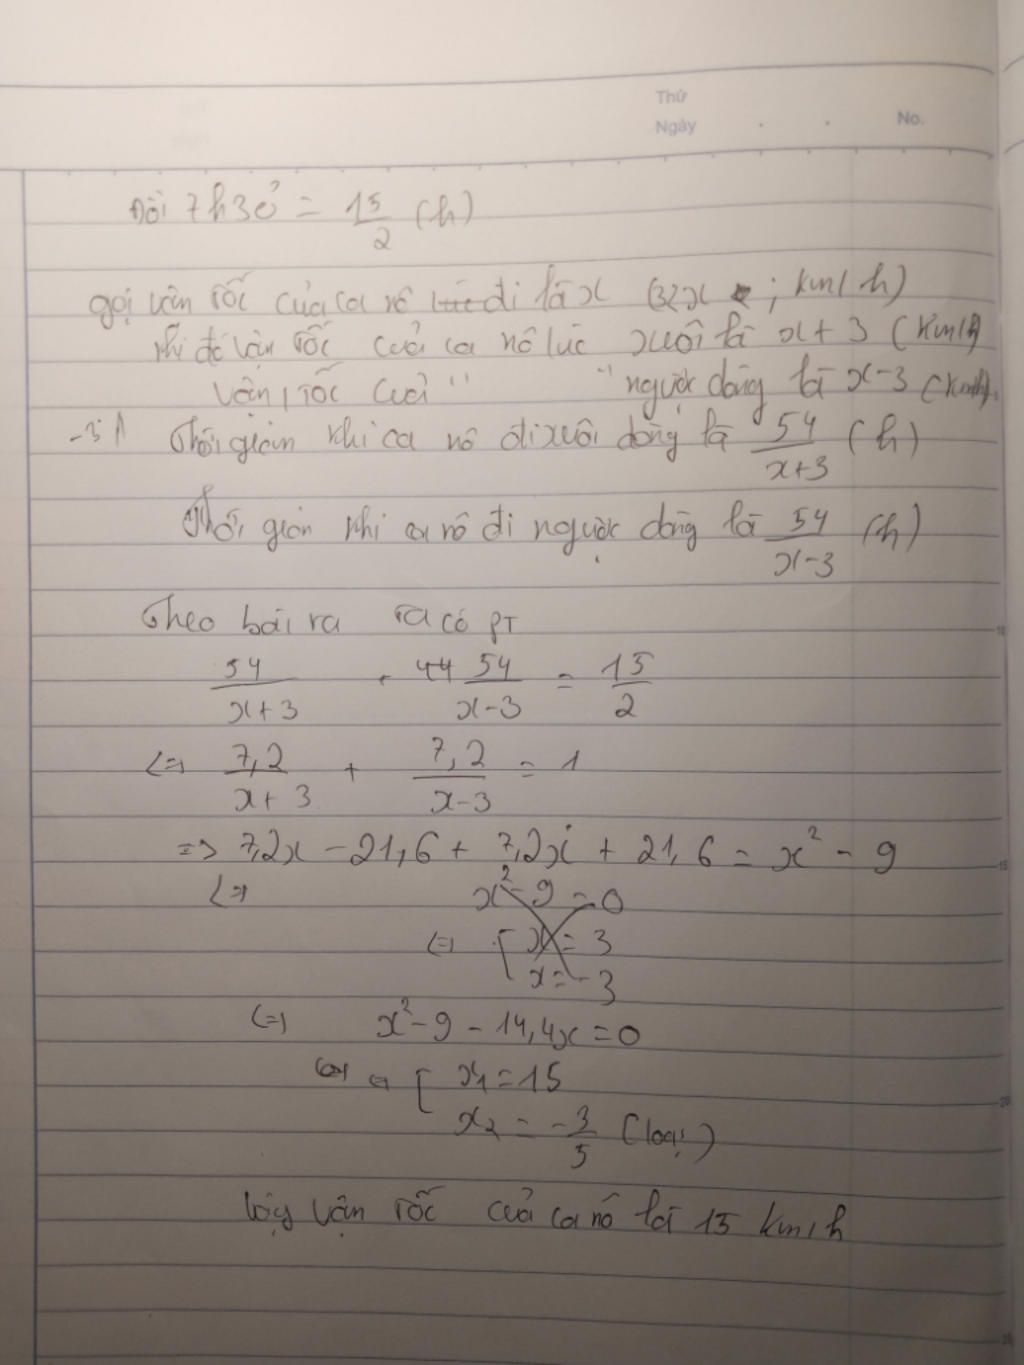 Thứ
Ngày . . No.
Đổi 7h30' = 15/2 (h)
gọi vận tốc của ca nô đi là x (3<x ; km/h)
khi đó vận tốc của ca nô lúc xuôi là x+3 (km/h)
Vận tốc của " " ngược dòng là x-3 (km/h).
Thời gian khi ca nô đi xuôi dòng là 54/x+3 (h)
Thời gian khi ca nô đi ngược dòng là 54/x-3 (h)
Theo bài ra ta có PT
54/x+3 + 54/x-3 = 15/2
<=> 7,2/x+3 + 7,2/x-3 = 1
=> 7,2x - 21,6 + 7,2x + 21,6 = x² - 9
<=> x² - 9 = 0
<=> [ x = 3
x = -3
<=> x² - 9 - 14,4x = 0
<=> [ x1 = 15
x2 = -3/5 (loại)
Vậy vận tốc của ca nô là 15 km/h